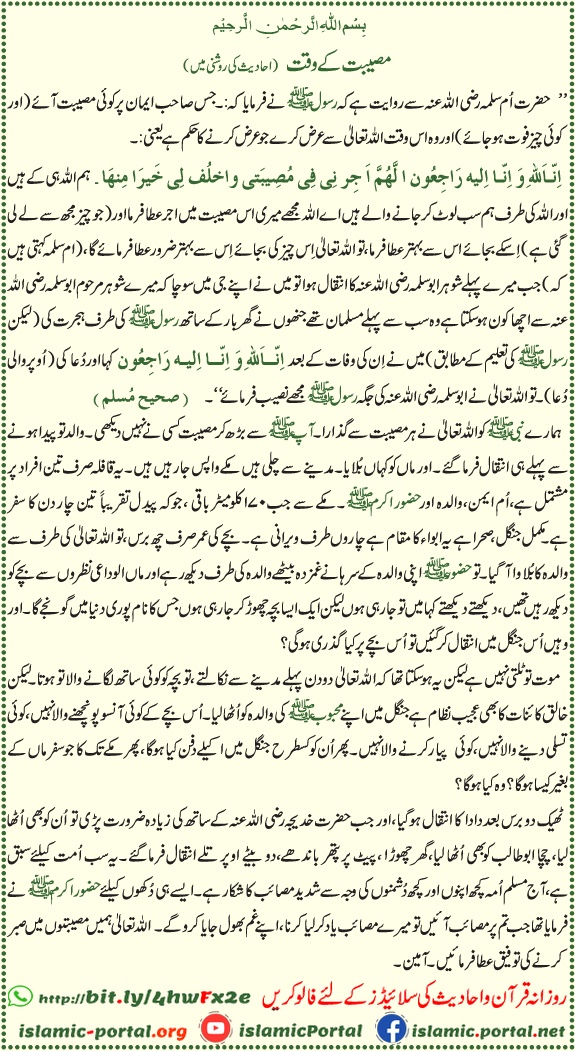 بِسْمِ اللهِ الرَّحْمٰنِ الرَّحِيْمِ
مصیبت کے وقت (احادیث کی روشنی میں)
’’ حضرت اُم سلمہ رضی اللہ عنہ سے روایت ہے کہ رسول ﷺ نے فرمایا کہ:۔ جس صاحب ایمان پر کوئی مصیبت آئے (اور
کوئی چیز فوت ہو جائے) اور وہ اس وقت اللہ تعالیٰ سے عرض کرے جو عرض کرنے کا حکم ہے یعنی:۔
اِنَّـاللهِ وَ اِنَّـا اِلیه رَاجِعُون اللَّهُمَّ اَجِر نِی فِی مُصِیبَتِی وَاخلُف لِی خَیرًا مِنهَا۔ ہم اللہ ہی کے ہیں
اور اللہ کی طرف ہم سب لوٹ کر جانے والے ہیں اے اللہ مجھے میری اس مصیبت میں اجر عطا فرما اور (جو چیز مجھ سے لے لی
گئی ہے) اِسکے بجائے اس سے بہتر عطا فرما، تو اللہ تعالیٰ اِس چیز کی بجائے اِس سے بہتر ضرور عطا فرمائے گا، (ام سلمہ کہتی ہیں
کہ) جب میرے پہلے شوہر ابو سلمہ رضی اللہ عنہ کا انتقال ہوا تو میں نے اپنے جی میں سوچا کہ میرے شوہر مرحوم ابو سلمہ رضی اللہ
عنہ سے اچھا کون ہو سکتا ہے وہ سب سے پہلے مسلمان تھے جنھوں نے گھر بار کے ساتھ رسول ﷺ کی طرف ہجرت کی (لیکن
رسول ﷺ کی تعلیم کے مطابق) میں نے اِن کی وفات کے بعد اِنَّـاللهِ وَ اِنَّـا اِلیـه رَاجِعُون کہا اور دُعا کی (اُوپر والی
دُعا)۔ تو اللہ تعالیٰ نے ابو سلمہ رضی اللہ عنہ کی جگہ رسول ﷺ مجھے نصیب فرمائے‘‘۔ (صحیح مُسلم)
ہمارے نبی ﷺ کو اللہ تعالیٰ نے ہر مصیبت سے گذارا۔ آپ ﷺ سے بڑھ کر مصیبت کسی نے نہیں دیکھی۔ والد تو پیدا ہونے
سے پہلے ہی انتقال فرما گئے۔ اور ماں کو کہاں بُلایا۔ مدینے سے چلی ہیں مکے واپس جا رہیں ہیں۔ یہ قافلہ صرف تین افراد پر
مشتمل ہے، اُم ایمن، والدہ اور حضور اکرم ﷺ۔ مکے سے جب ۱۷۰ کلو میٹر باقی، جو کہ پیدل تقریباً تین چار دن کا سفر
ہے مکمل جنگل، صحرا ہے یہ ابواء کا مقام ہے چاروں طرف ویرانی ہے۔ بچے کی عمر صرف چھ برس، تو اللہ تعالیٰ کی طرف سے
والدہ کا بُلاوا آ گیا۔ تو حضور ﷺ اپنی والدہ کے سرہانے غمزدہ بیٹھے والدہ کی طرف دیکھ رہے اور ماں الوداعی نظروں سے بچے کو
دیکھ رہیں تھیں، دیکھتے دیکھتے کہا میں تو جا رہی ہوں لیکن ایک ایسا بچہ چھوڑ کر جا رہی ہوں جس کا نام پوری دنیا میں گونجے گا۔ اور
وہیں اُس جنگل میں انتقال کر گئیں تو اُس بچے پر کیا گذری ہو گی؟
موت تو ٹلتی نہیں ہے لیکن یہ ہو سکتا تھا کہ اللہ تعالیٰ دو دن پہلے مدینے سے نکالتے، تو بچہ کو کوئی ساتھ لگانے والا تو ہوتا۔ لیکن
خالق کائنات کا بھی عجیب نظام ہے جنگل میں اپنے محبوب ﷺ کی والدہ کو اُٹھا لیا۔ اُس بچے کے کوئی آنسو پونچھنے والا نہیں، کوئی
تسلی دینے والا نہیں، کوئی پیار کرنے والا نہیں۔ پھر اُن کو کسطرح جنگل میں اکیلے دفن کیا ہو گا، پھر مکے تک کا جو سفر ماں کے
بغیر کیسا ہو گا؟ وہ کیا ہو گا؟
ٹھیک دو برس بعد دادا کا انتقال ہو گیا، اور جب حضرت خدیجہ رضی اللہ عنہ کے ساتھ کی زیادہ ضرورت پڑی تو اُن کو بھی اُٹھا
لیا، چچا ابو طالب کو بھی اُٹھا لیا، گھر چھوڑا، پیٹ پر پتھر باندھے، دو بیٹے اوپر تلے انتقال فرما گئے۔ یہ سب اُمت کیلئے سبق
ہے، آج مسلم اُمہ کچھ اپنوں اور کچھ دُشمنوں کی وجہ سے شدید مصائب کا شکار ہے۔ ایسے ہی دُکھوں کیلئے حضور اکرم ﷺ نے
فرمایا تھا جب تم پر مصائب آئیں تو میرے مصائب یاد کر لیا کرنا، اپنے غم بھول جایا کرو گے۔ اللہ تعالیٰ ہمیں مصیبتوں میں صبر
کرنے کی توفیق عطا فرمائیں۔ آمین۔
روزانہ قرآن و احادیث کی سلائیڈز کے لئے فالو کریں http://bit.ly/4hwFx2e
islamic-portal.org islamicPortal islamic.portal.net